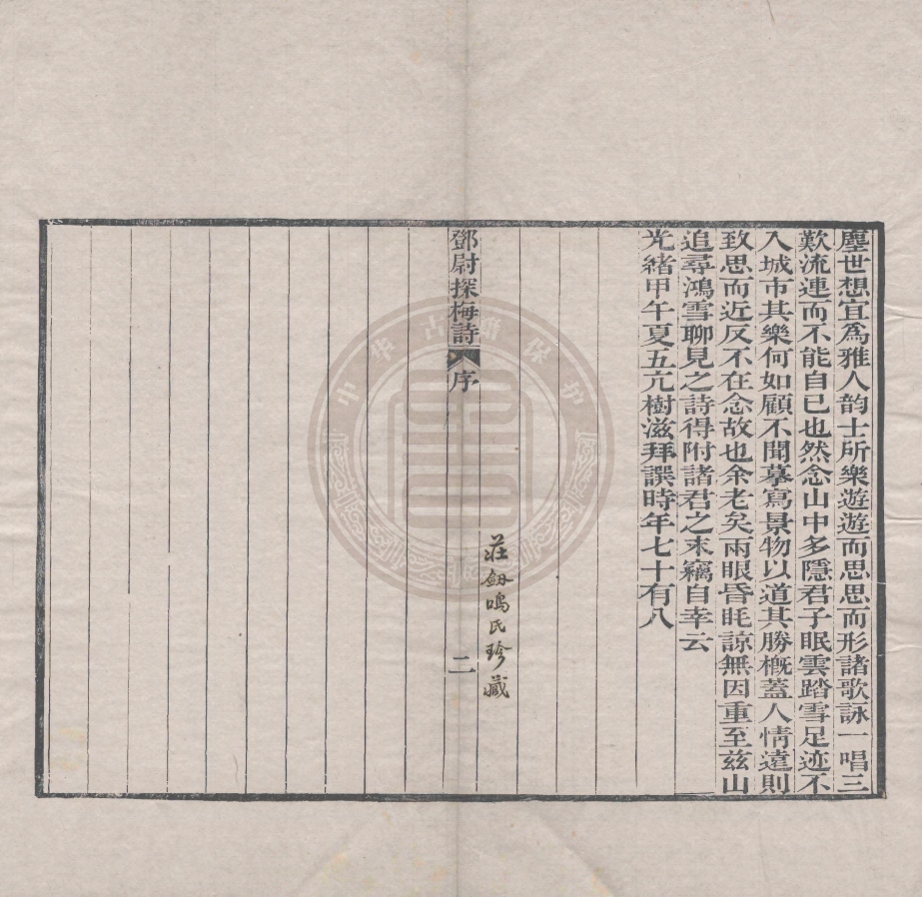 塵世想宜爲雅人韵士所樂遊遊而思思而形諸歌詠一唱三
歎流連而不能自已也然念山中多隱君子眠雲踏雪足迹不
入城市其樂何如顧不聞摹寫景物以道其勝概蓋人情遠則
致思而近反不在念故也余老矣兩眼昏眊諒無因重至兹山
追尋鴻雪聊見之詩得附諸君之末竊自幸云
光緒甲午夏五亢樹滋拜譔時年七十有八
莊劍鳴氏珍藏
鄧尉探梅詩 序 二
中华古籍保护